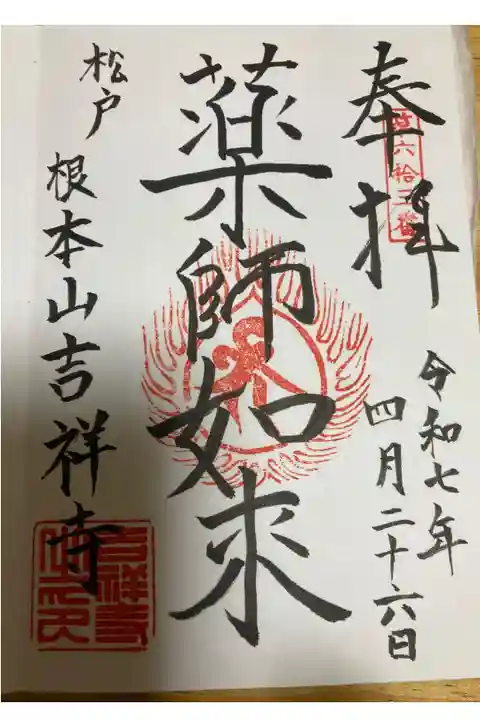 奉拝
第六拾三番
令和七年
四月二十六日
薬師如来
松戸
根本山吉祥寺